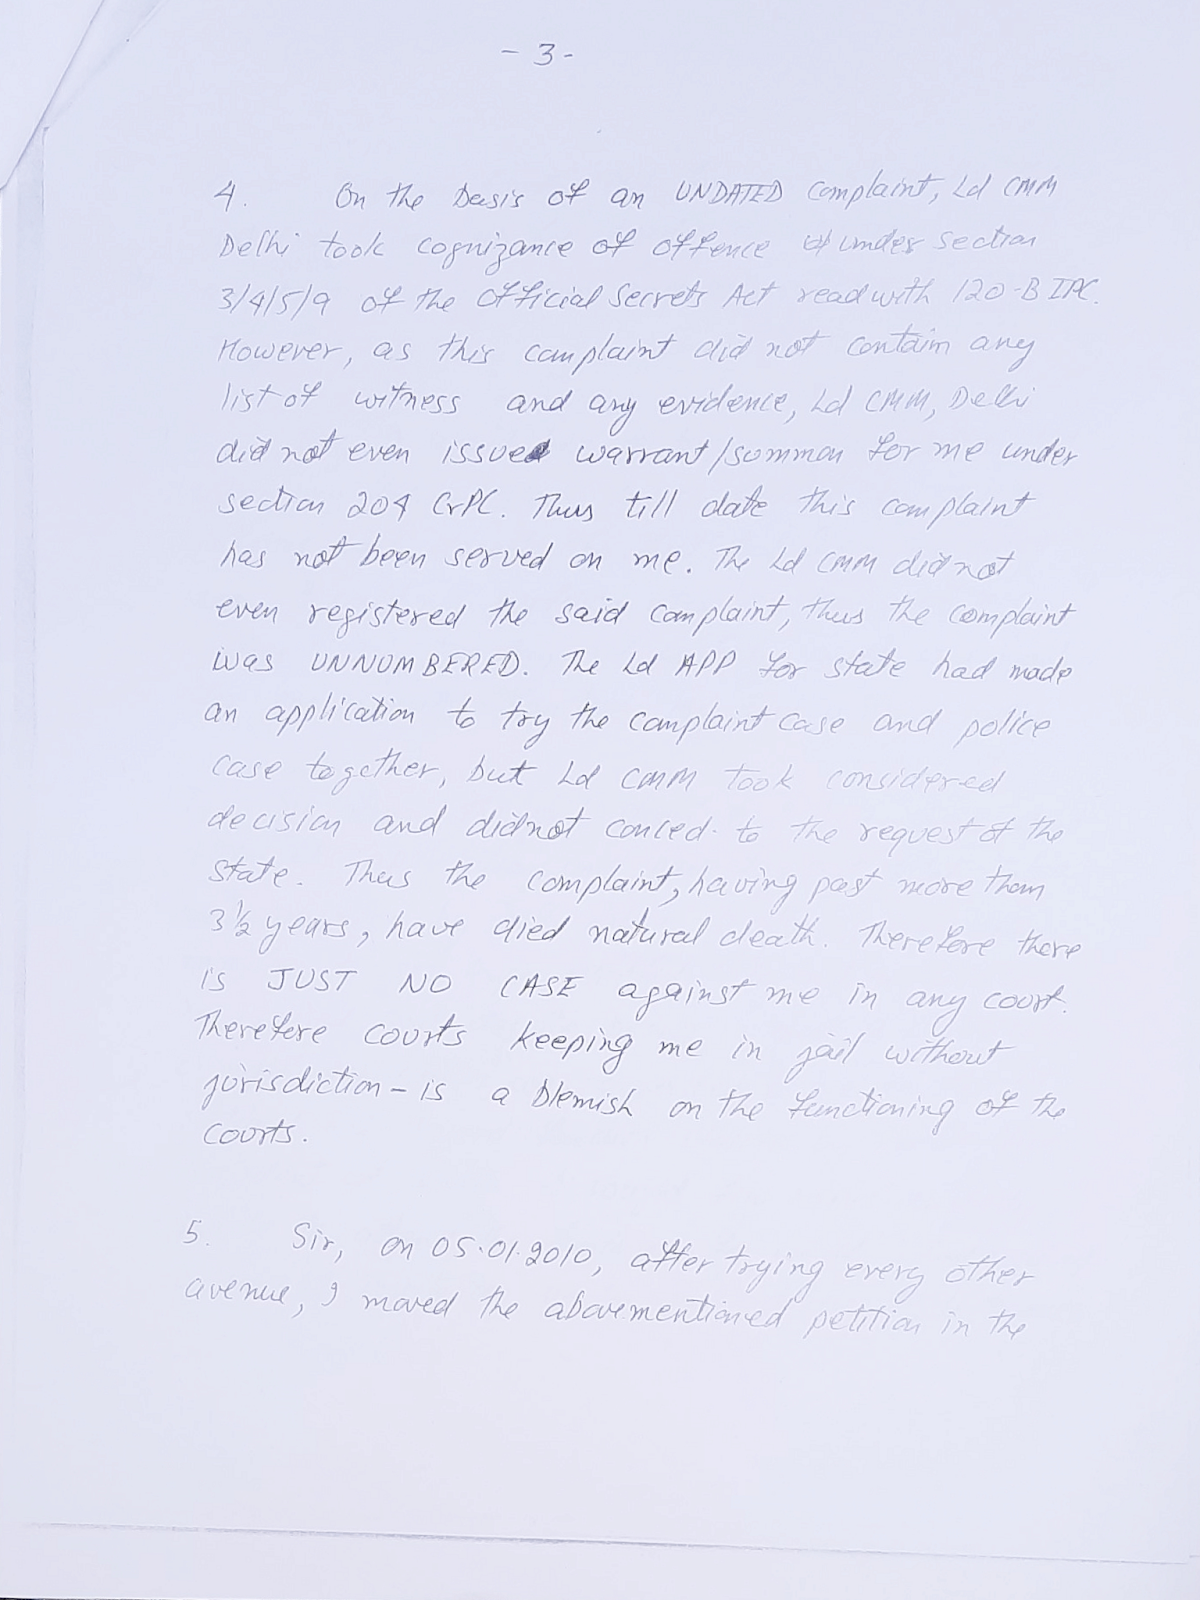 - 3 -
4. On the basis of an UNDATED complaint, Ld CMM
Delhi took cognizance of offence under section
3/4/5/9 of the Official Secrets Act read with 120-B IPC.
However, as this complaint did not contain any
list of witness and any evidence, Ld CMM, Delhi
did not even issue warrant/summon for me under
section 204 CrPC. Thus till date this complaint
has not been served on me. The Ld CMM did not
even registered the said complaint, thus the complaint
was UNNUMBERED. The Ld APP for state had made
an application to try the complaint case and police
case together, but Ld CMM took considered
decision and didnot conced to the request of the
state. Thus the complaint, having past more than
3½ years, have died natural death. Therefore there
is JUST NO CASE against me in any court.
Therefore courts keeping me in jail without
jurisdiction - is a blemish on the functioning of the
courts.
5. Sir, on 05.01.2010, after trying every other
avenue, I moved the abovementioned petition in the